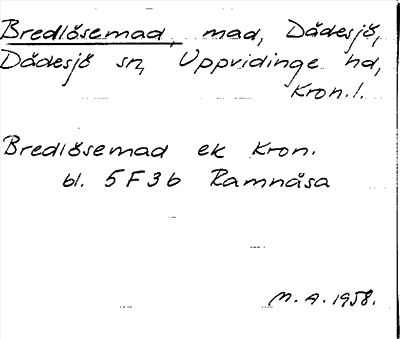 Bredlösemad, mad, Dädesjö,
Dädesjö sn, Uppvidinge hd,
Kron.l.
Bredlösemad ek Kron.
bl. 5F3b Ramnåsa
M.A. 1958.